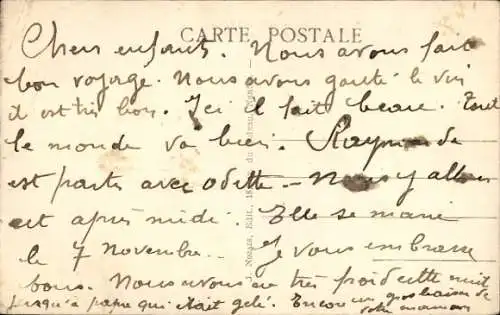 CARTE POSTALE
Chers enfants. Nous avons fait
bon voyage. Nous avons gouté le vin
il est très bon. Ici il fait beau. Tout
le monde va bien. Raymonde
est partis avec odette. - Nous y allons
cet après midi. Elle se marie
le 7 Novembre. Je vous embrasse
tous. Nous avons eu très froid cette nuit
jusqu'à papa qui était gelé. Encore un gros baiser de
votre maman
J. Nozais, Edit., 18